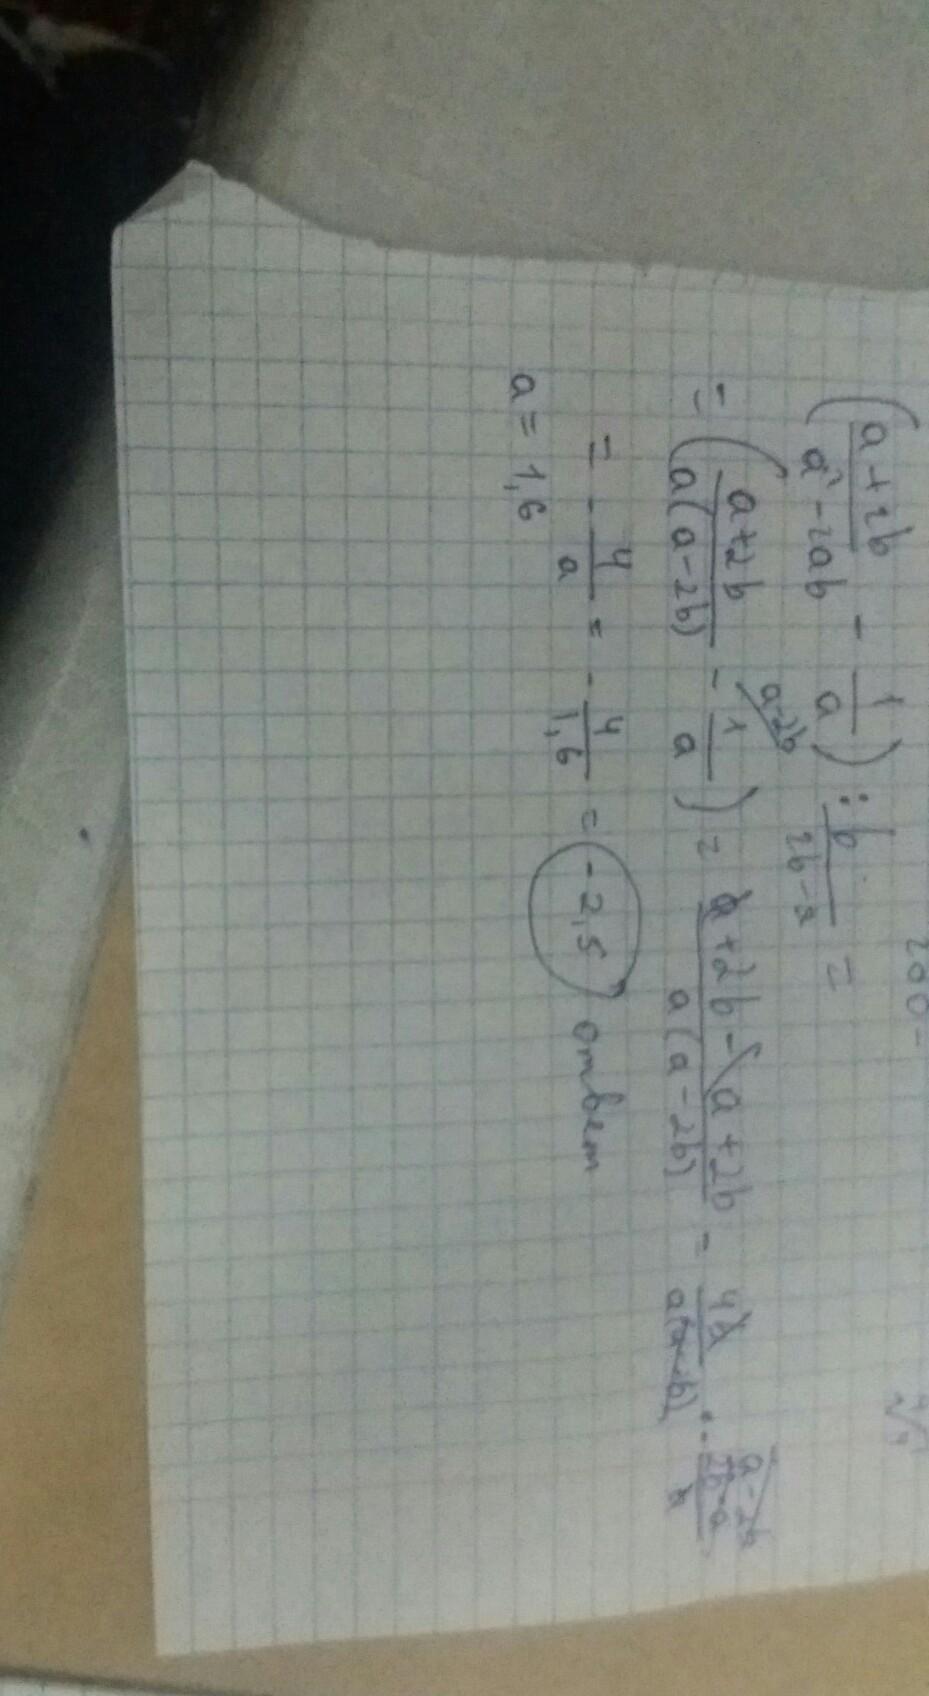 200-
(a+2b/a²-2ab - 1/a) : b/2b-a =
= (a+2b/a(a-2b) - 1/a) = a+2b-a+2b/a(a-2b) = 4b/a(a-2b) · - 2b-a/b
a-2b
a-2b
= - 4/a = - 4/1,6 = -2,5 ответ
a = 1,6